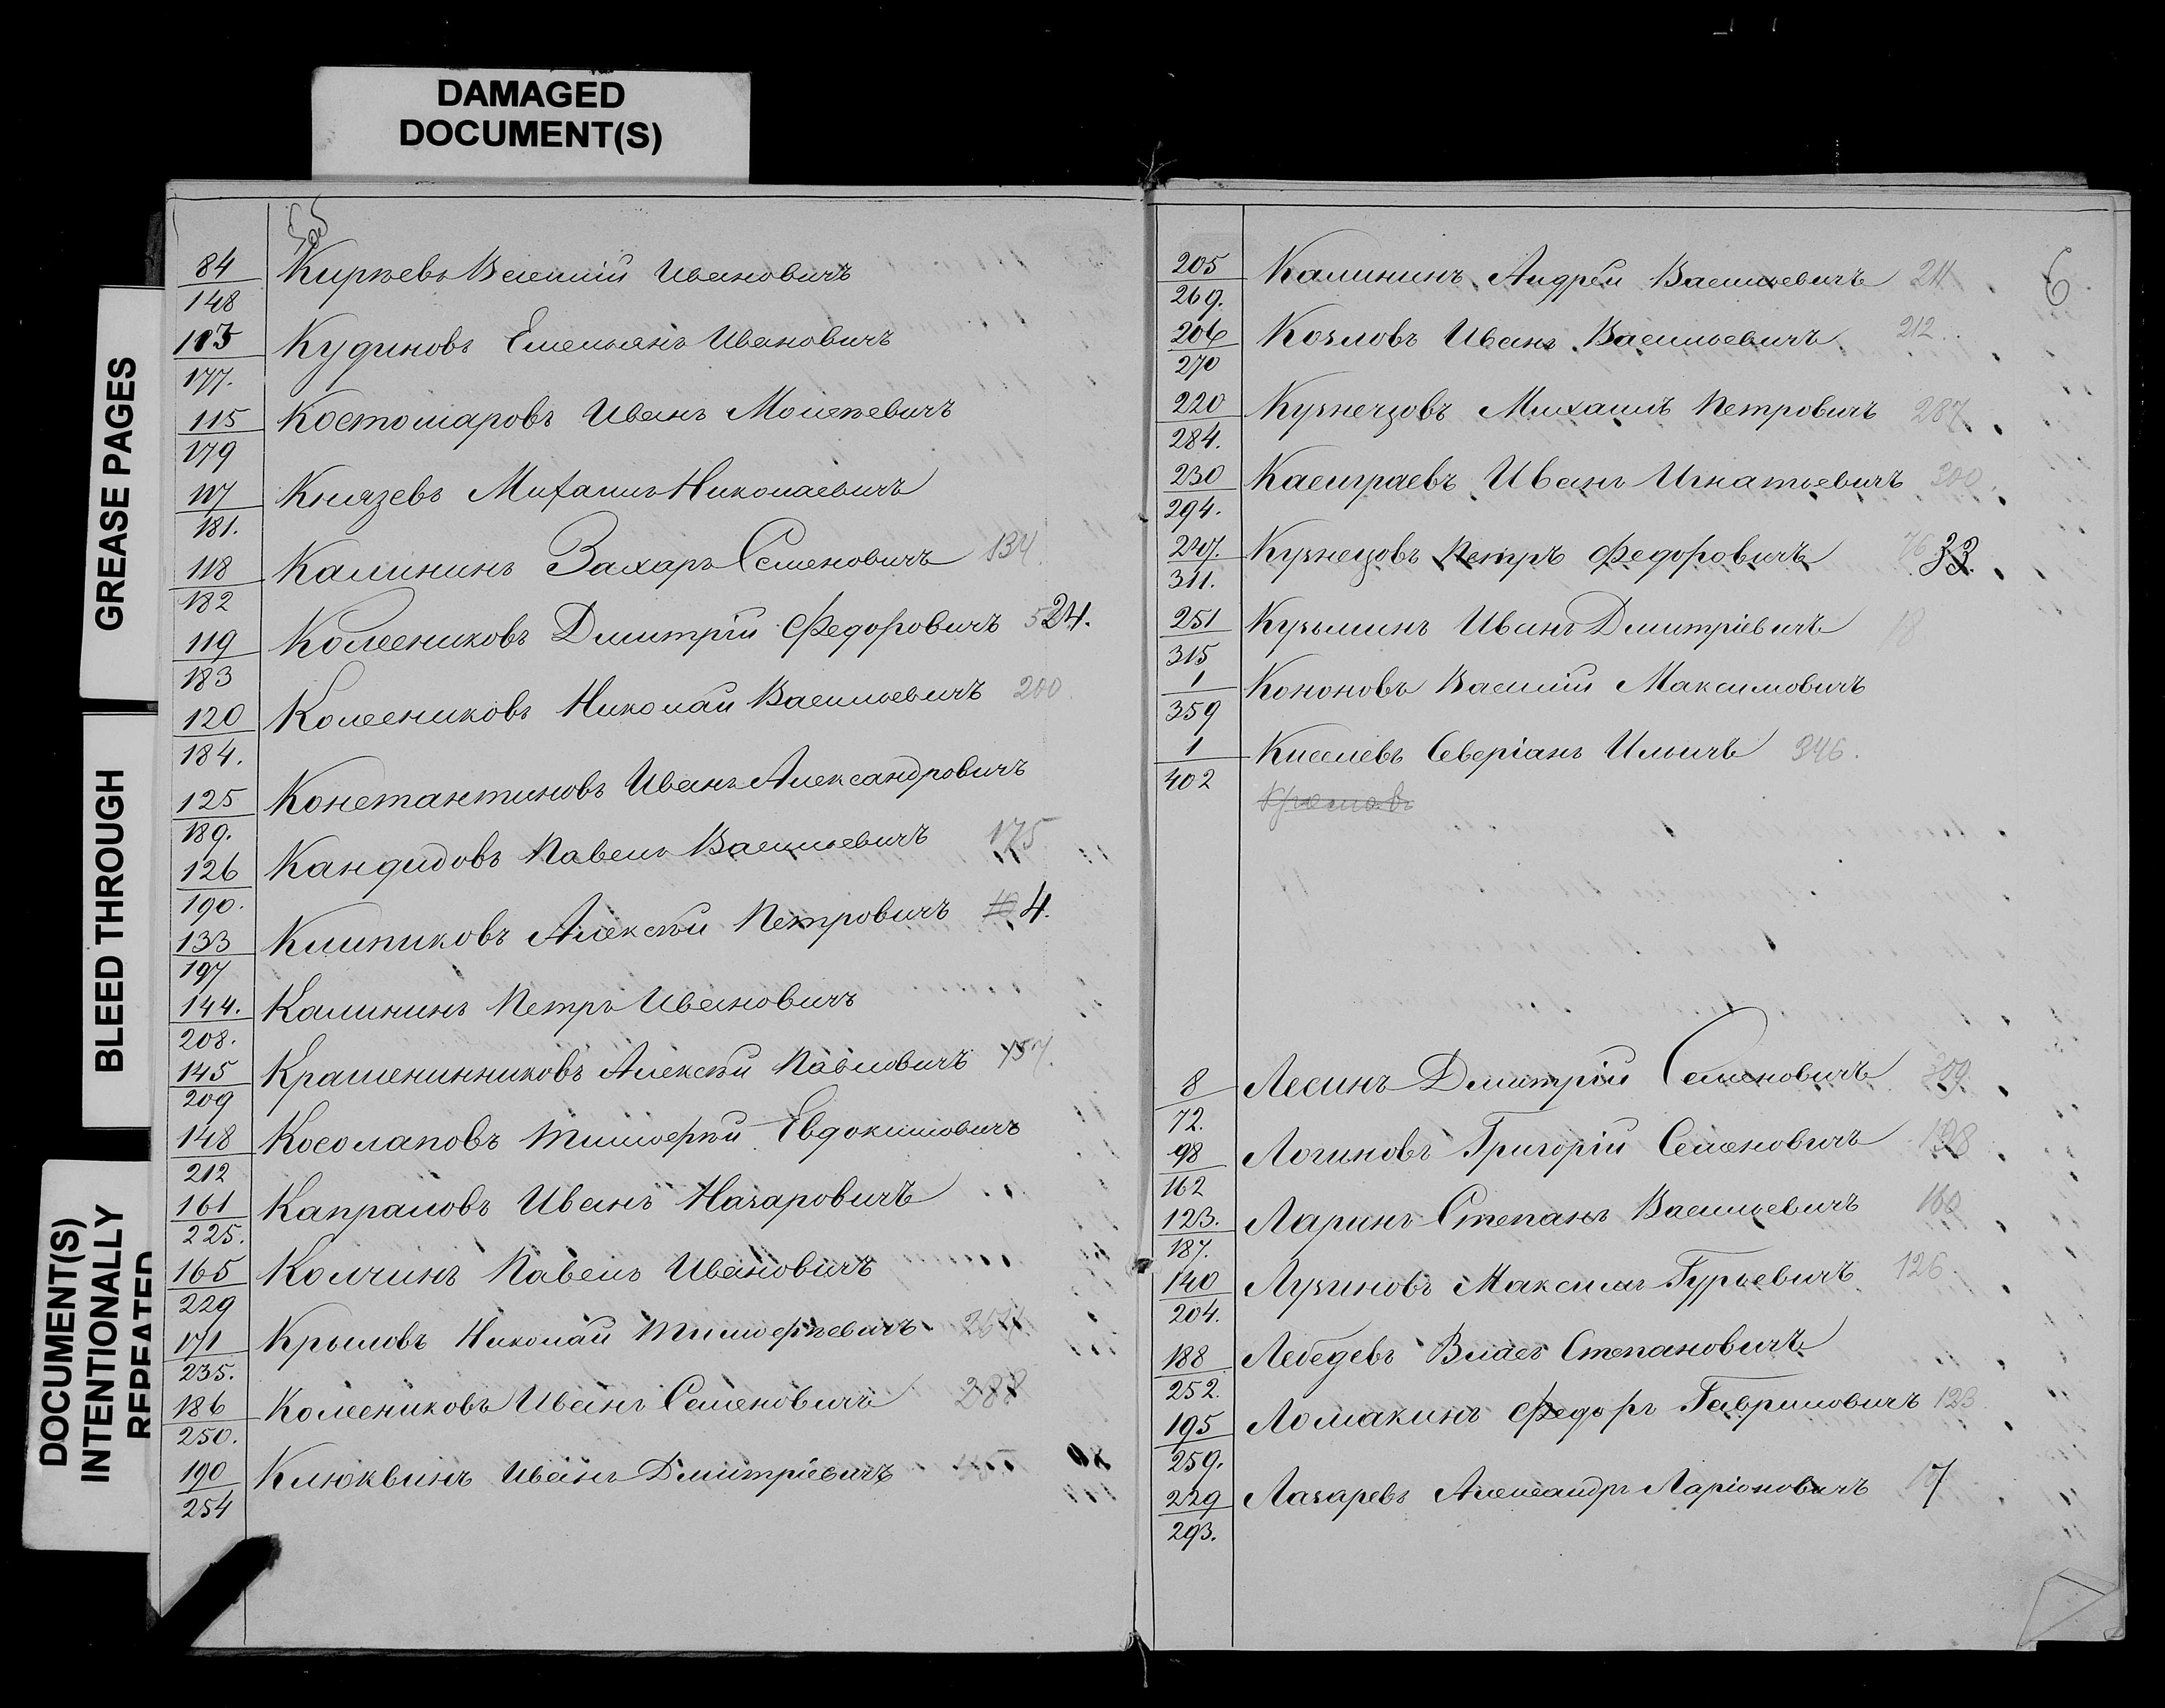 DAMAGED
DOCUMENT(S)
GREASE PAGES
BLEED THROUGH
DOCUMENT(S)
INTENTIONALLY
REPEATED
84 Кирѣевъ Василій Ивановичъ
148
113 Кудиновъ Емельянъ Ивановичъ
177.
115 Костомаровъ Иванъ Моисеевичъ
179
117 Князевъ Михаилъ Николаевичъ
181.
118 Калининъ Захаръ Семеновичъ 134
182
119 Колесниковъ Дмитрій Федоровичъ 24.
183
120 Колесниковъ Николай Васильевичъ 200
184.
125 Константиновъ Иванъ Александровичъ
189.
126 Кандидовъ Павелъ Васильевичъ 175
190.
133 Клипиковъ Алексѣй Петровичъ 4.
197
144. Калининъ Петръ Ивановичъ
208.
145 Крашенинниковъ Алексѣй Павловичъ 157.
209
148 Косолаповъ Тимофѣй Евдокимовичъ
212
161 Капраловъ Иванъ Назаровичъ
225.
165 Колчинъ Павелъ Ивановичъ
229
171 Крыловъ Николай Тимофѣевичъ
235.
186 Колесниковъ Иванъ Семеновичъ 288
250.
190 Клюквинъ Иванъ Дмитріевичъ
254
6
205 Калининъ Андрей Васильевичъ 211
269.
206 Козловъ Иванъ Васильевичъ 212
270
220 Кузнецовъ Михаилъ Петровичъ 287
284.
230 Касиграевъ Иванъ Игнатьевичъ 200
294.
247. Кузнецовъ Петръ Федоровичъ 33
311.
251 Кузьминъ Иванъ Дмитріевичъ 18
315
1 Кононовъ Василій Максимовичъ
359
1 Киселевъ Северіанъ Ильичъ 346.
402
8 Лесинъ Дмитрій Семеновичъ 309
72.
98 Логиновъ Григорій Семеновичъ 198
162
123. Ларинъ Степанъ Васильевичъ 160
187.
140 Лузиновъ Максимъ Гурьевичъ 126
204.
188 Лебедевъ Власъ Степановичъ
252.
195 Ломакинъ Федоръ Гавриловичъ 123
259.
229 Лазаревъ Александръ Ларіоновичъ 7
293.